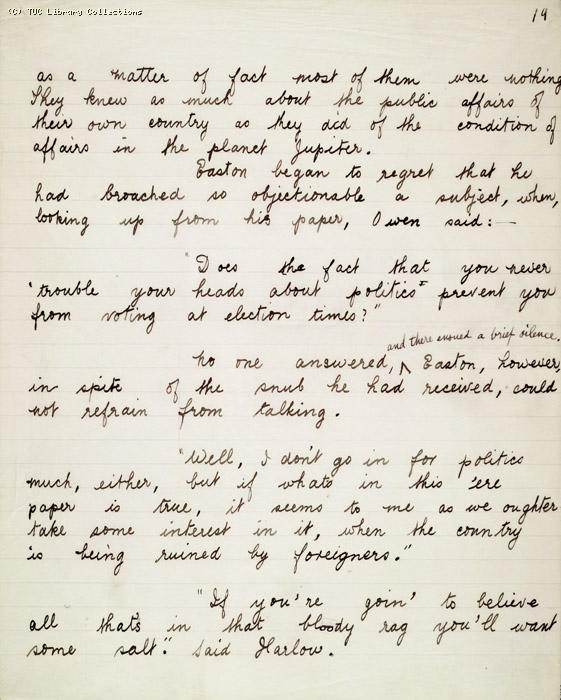 (C) TUC Library Collections
19
as a matter of fact most of them were nothing
They knew as much about the public affairs of
their own country as they did of the condition of
affairs in the planet Jupiter.
Easton began to regret that he
had broached so objectionable a subject, when,
looking up from his paper, Owen said:—
"Does the fact that you never
'trouble your heads about politics' prevent you
from voting at election times?"
and there ensued a brief silence.
No one answered, ^ Easton, however,
in spite of the snub he had received, could
not refrain from talking.
"Well, I don't go in for politics
much, either, but if whats in this 'ere
paper is true, it seems to me as we oughter
take some interest in it, when the country
is being ruined by foreigners."
"If you're goin' to believe
all thats in that bloody rag you'll want
some salt." said Harlow.